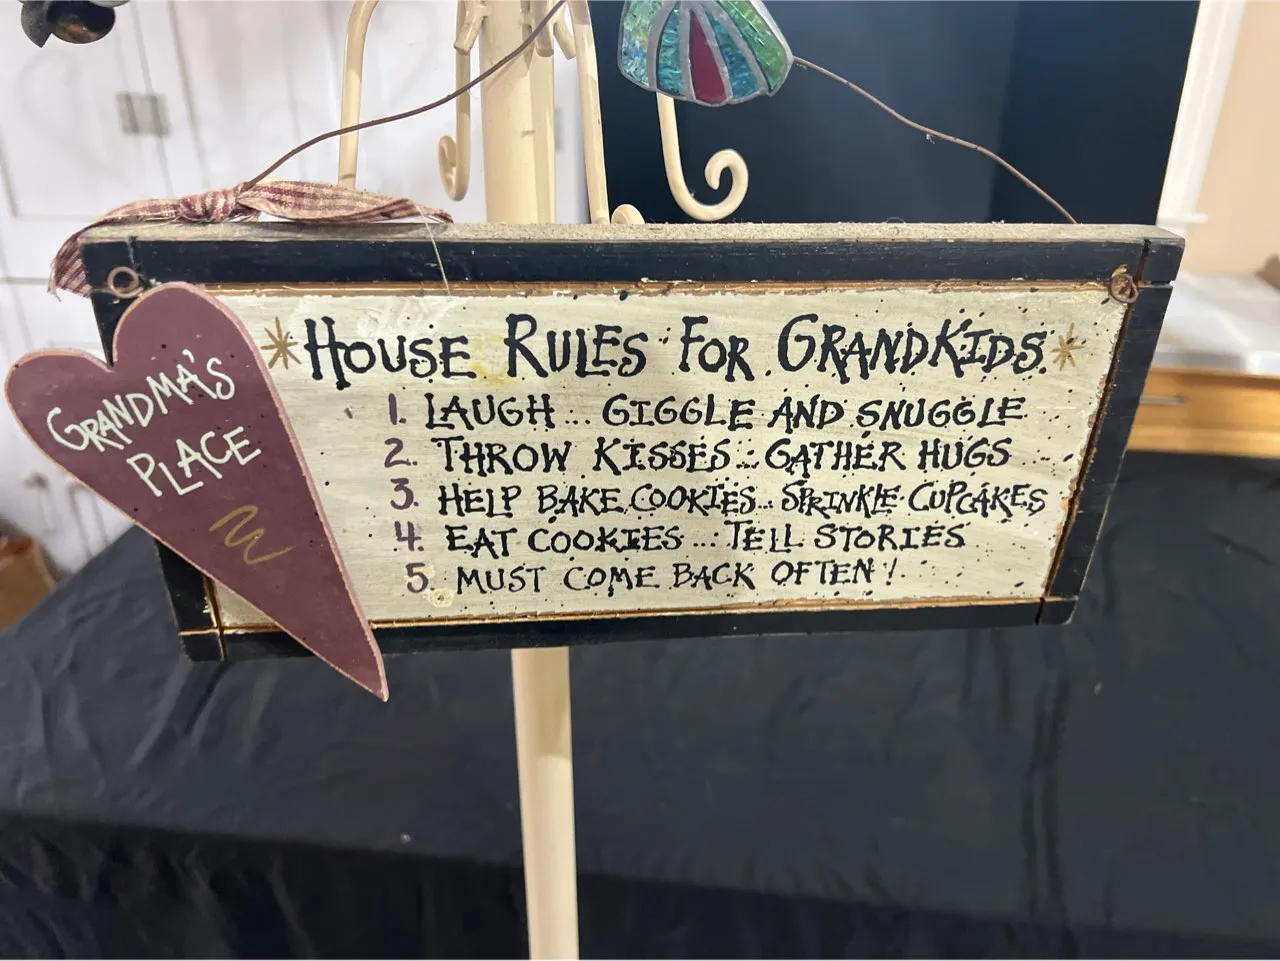 GRANDMA'S
PLACE
HOUSE RULES FOR GRANDKIDS.
1. LAUGH... GIGGLE AND SNUGGLE
2. THROW KISSES... GATHER HUGS
3. HELP BAKE COOKIES... SPRINKLE CUPCAKES
4. EAT COOKIES... TELL STORIES
5. MUST COME BACK OFTEN!